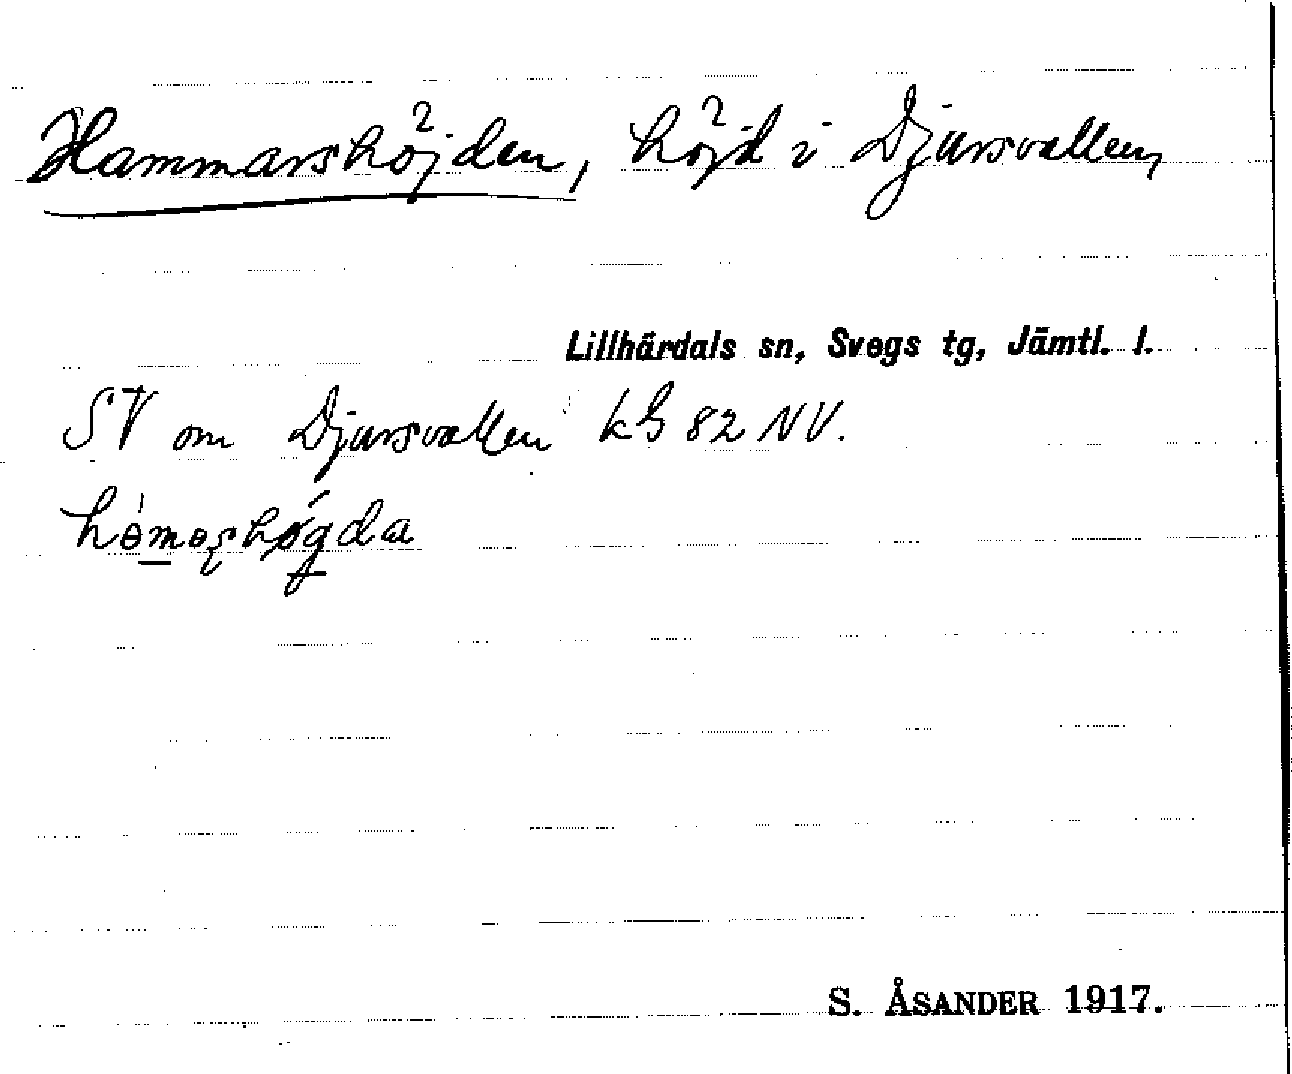 Hammarshöjden, höjd i Djursvallen,
Lillhärdals sn, Svegs tg, Jämtl. l.
SV om Djursvallen kG 82 NV.
hòmoʂhǿgda
S. ÅSANDER 1917.